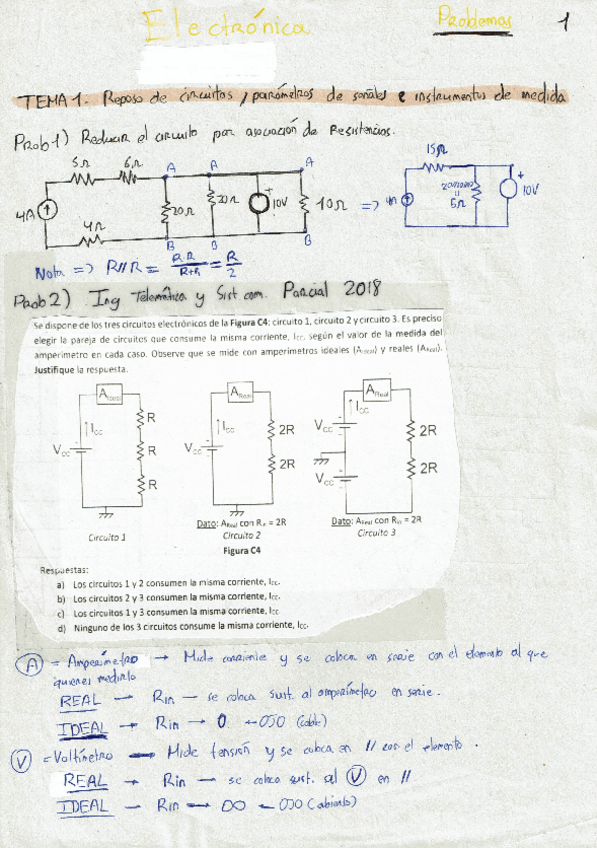 Electrónica
Problemas
1
TEMA 1. Repaso de circuitos, parámetros de señales e instrumentos de medida
Prob 1) Reducir el circuito por asociación de Resistencias.
5Ω 6Ω A A A
4A 20Ω 20Ω + 10V 10Ω
4Ω
B B B
=> 4A 15Ω 5Ω + 10V
Nota => R//R = R·R/R+R = R/2
Prob 2) Ing Telemática y Sist com. Parcial 2018
Se dispone de los tres circuitos electrónicos de la Figura C4: circuito 1, circuito 2 y circuito 3. Es preciso
elegir la pareja de circuitos que consume la misma corriente, Icc, según el valor de la medida del
amperímetro en cada caso. Observe que se mide con amperímetros ideales (AIdeal) y reales (AReal).
Justifique la respuesta.
AIdeal
Icc
Vcc
R
R
R
Circuito 1
AReal
Icc
Vcc
2R
2R
Dato: AReal con Rin = 2R
Circuito 2
Figura C4
AReal
Icc
Vcc
Vcc
2R
2R
Dato: AReal con Rin = 2R
Circuito 3
Respuestas:
a) Los circuitos 1 y 2 consumen la misma corriente, Icc.
b) Los circuitos 2 y 3 consumen la misma corriente, Icc.
c) Los circuitos 1 y 3 consumen la misma corriente, Icc.
d) Ninguno de los 3 circuitos consume la misma corriente, Icc.
A = Amperímetro → Mide corriente y se coloca en serie con el elemento al que
quieres medirlo
REAL → Rin — se coloca sust. al amperímetro en serie.
IDEAL → Rin → 0 ← OJO (cable)
V = Voltímetro → Mide tensión y se coloca en // con el elemento.
REAL → Rin — se coloca sust. al V en //
IDEAL → Rin → ∞ ← OJO (abierto)